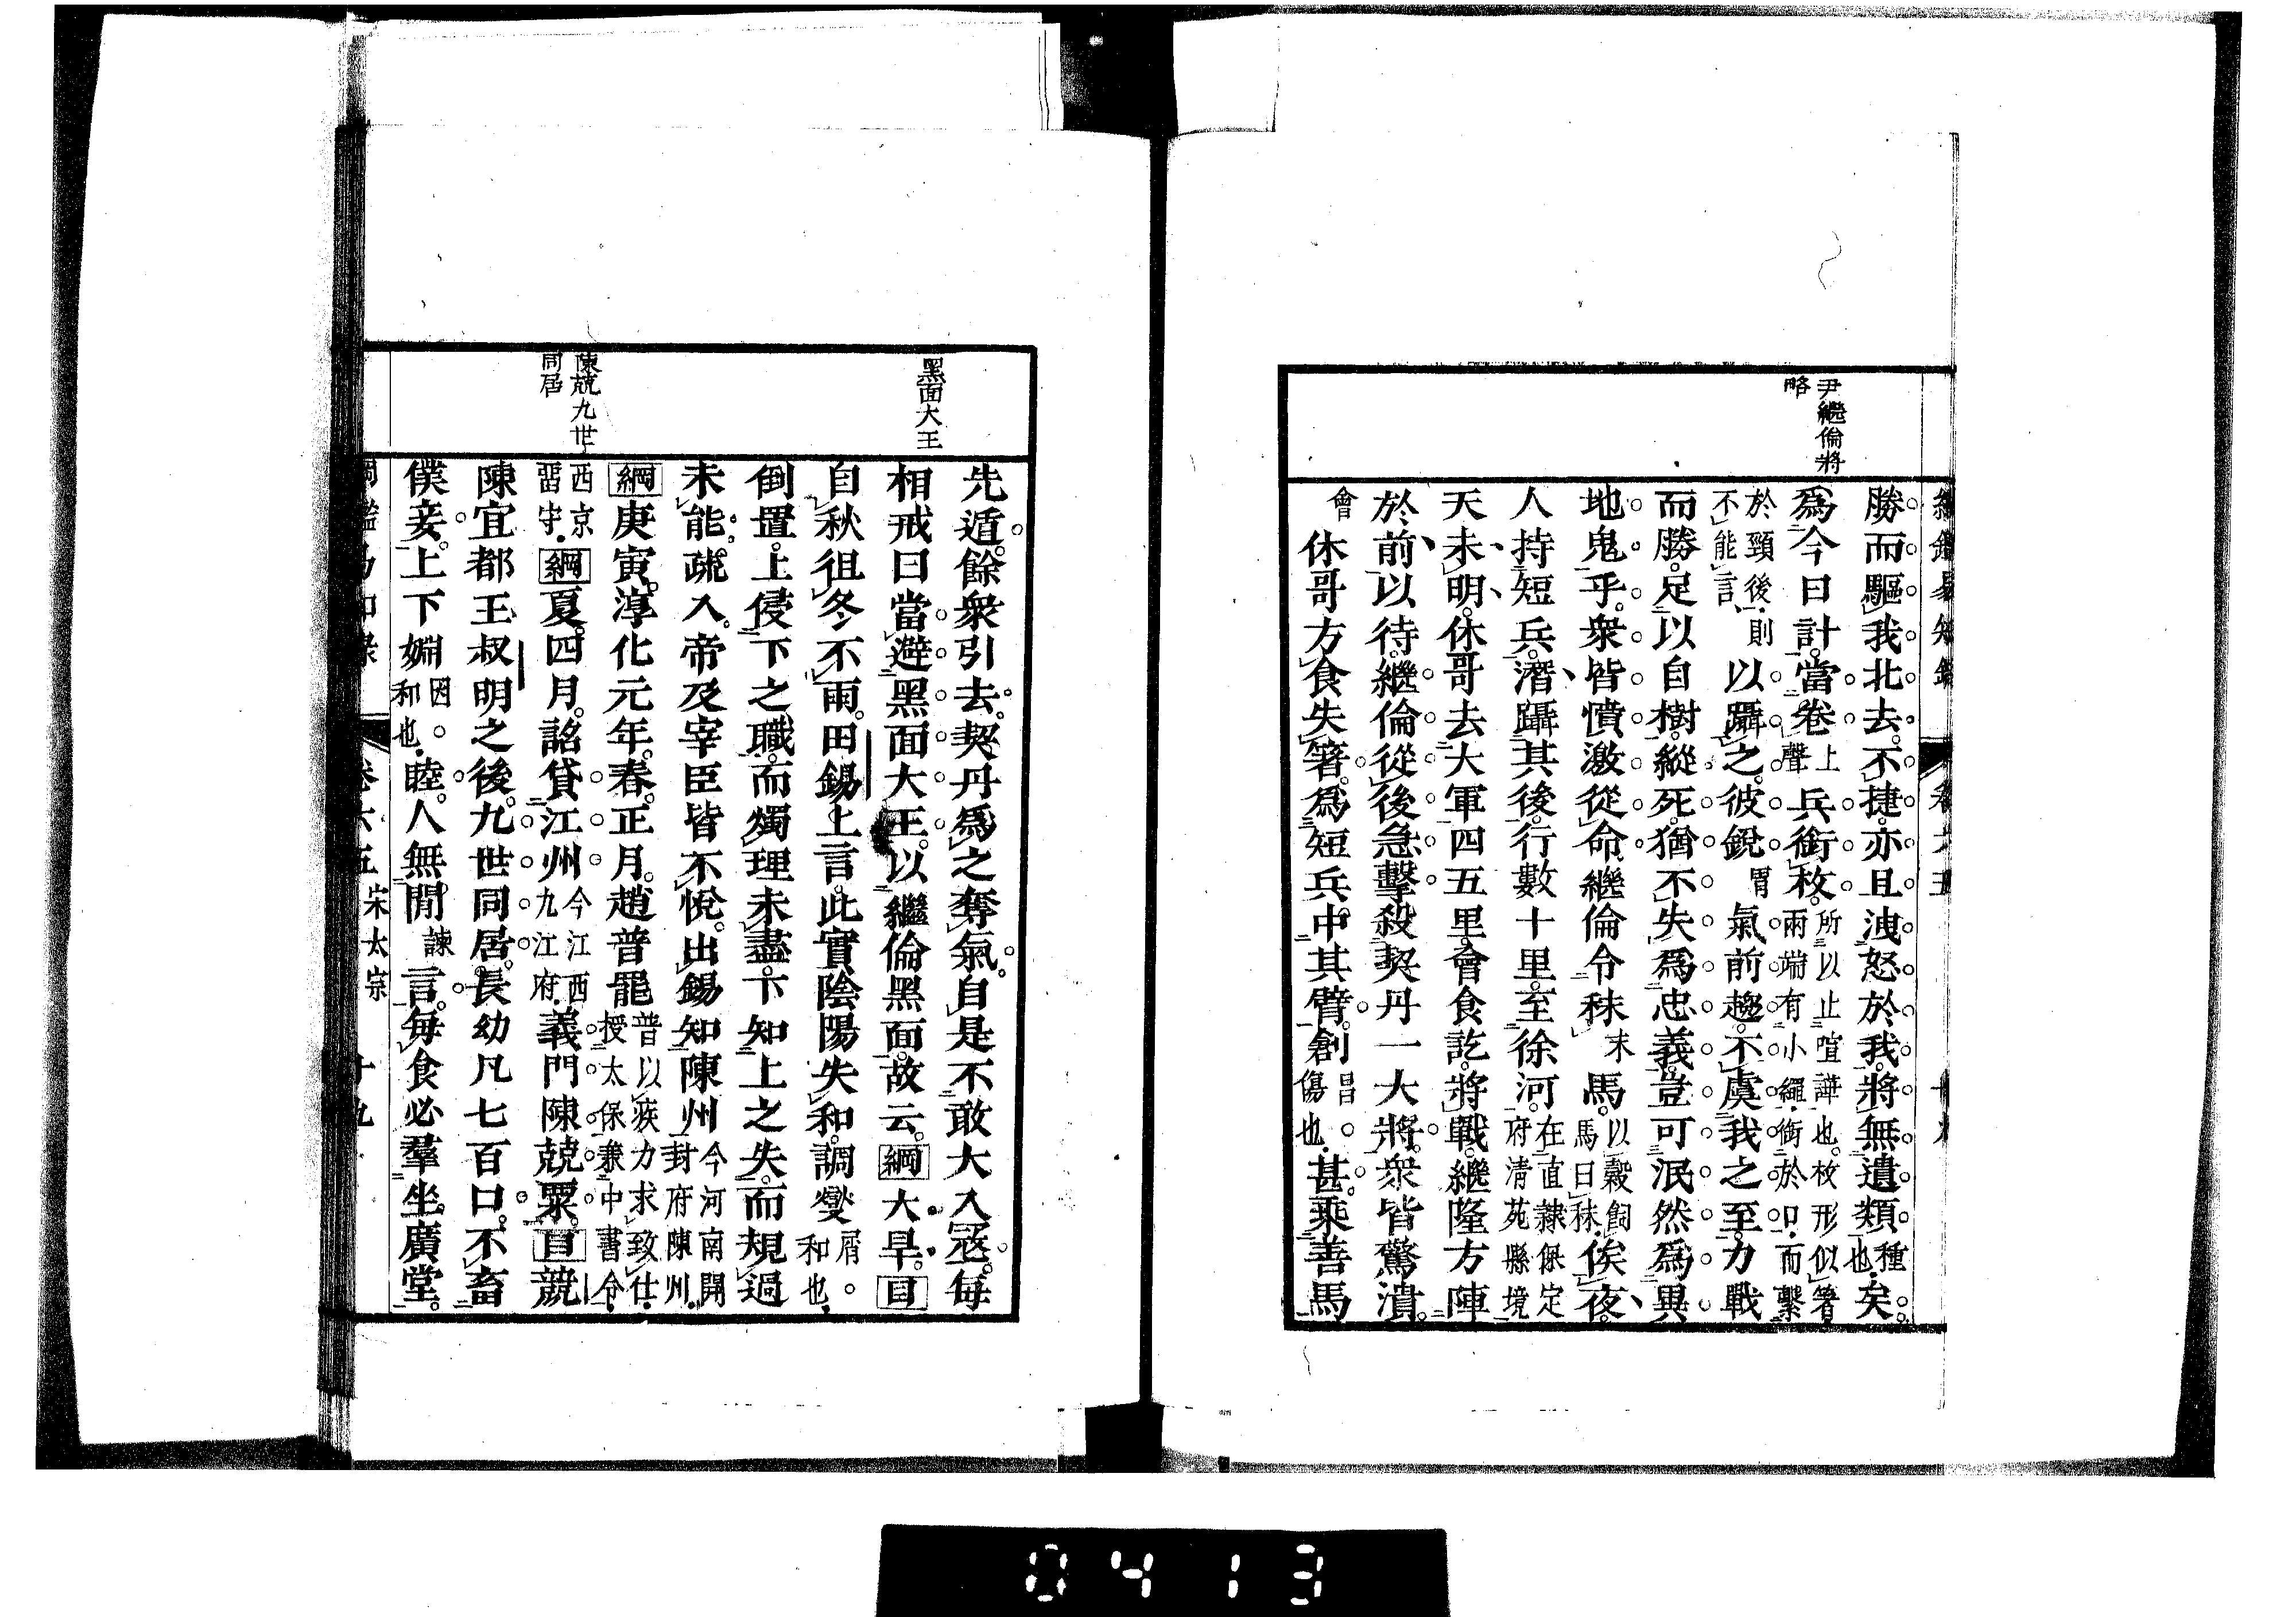 尹繼倫將
略
勝而驅我北去不捷亦且洩怒於我將無遺類種也矣
爲今日計當卷上聲兵銜枚所以止喧譁也枚形似箸兩端有小繩銜於口而繫
於頸後則不能言以躡之彼銳胃氣前趨不虞我之至力戰
而勝足以自樹縱死猶不失爲忠義豈可泯然爲異
地鬼乎衆皆憤激從命繼倫令秣末馬以穀飼馬曰秣俟夜
人持短兵潛躡其後行數十里至徐河在直隸保定府清苑縣境
天未明休哥去大軍四五里會食訖將戰繼隆方陣
於前以待繼倫從後急擊殺契丹一大將衆皆驚潰
會休哥方食失箸爲短兵中其臂創昌傷也甚乘善馬
黑面大王
陳兢九世
同居
先遁餘衆引去契丹爲之奪氣自是不敢大入寇每
相戒曰當避黑面大王以繼倫黑面故云綱大旱目
自秋徂冬不雨田錫上言此實陰陽失和調燮屑和也
倒置上侵下之職而燭理未盡下知上之失而規過
未能疏入帝及宰臣皆不悅出錫知陳州今河南開封府陳州
綱庚寅淳化元年春正月趙普罷普以疾力求致仕授太保兼中書令
西京畱守綱夏四月詔貸江州今江西九江府義門陳兢粟目兢
陳宜都王叔明之後九世同居長幼凡七百口不畜
僕妾上下婣因和也睦人無閒諫言每食必羣坐廣堂
卷六五 宋太宗 十九